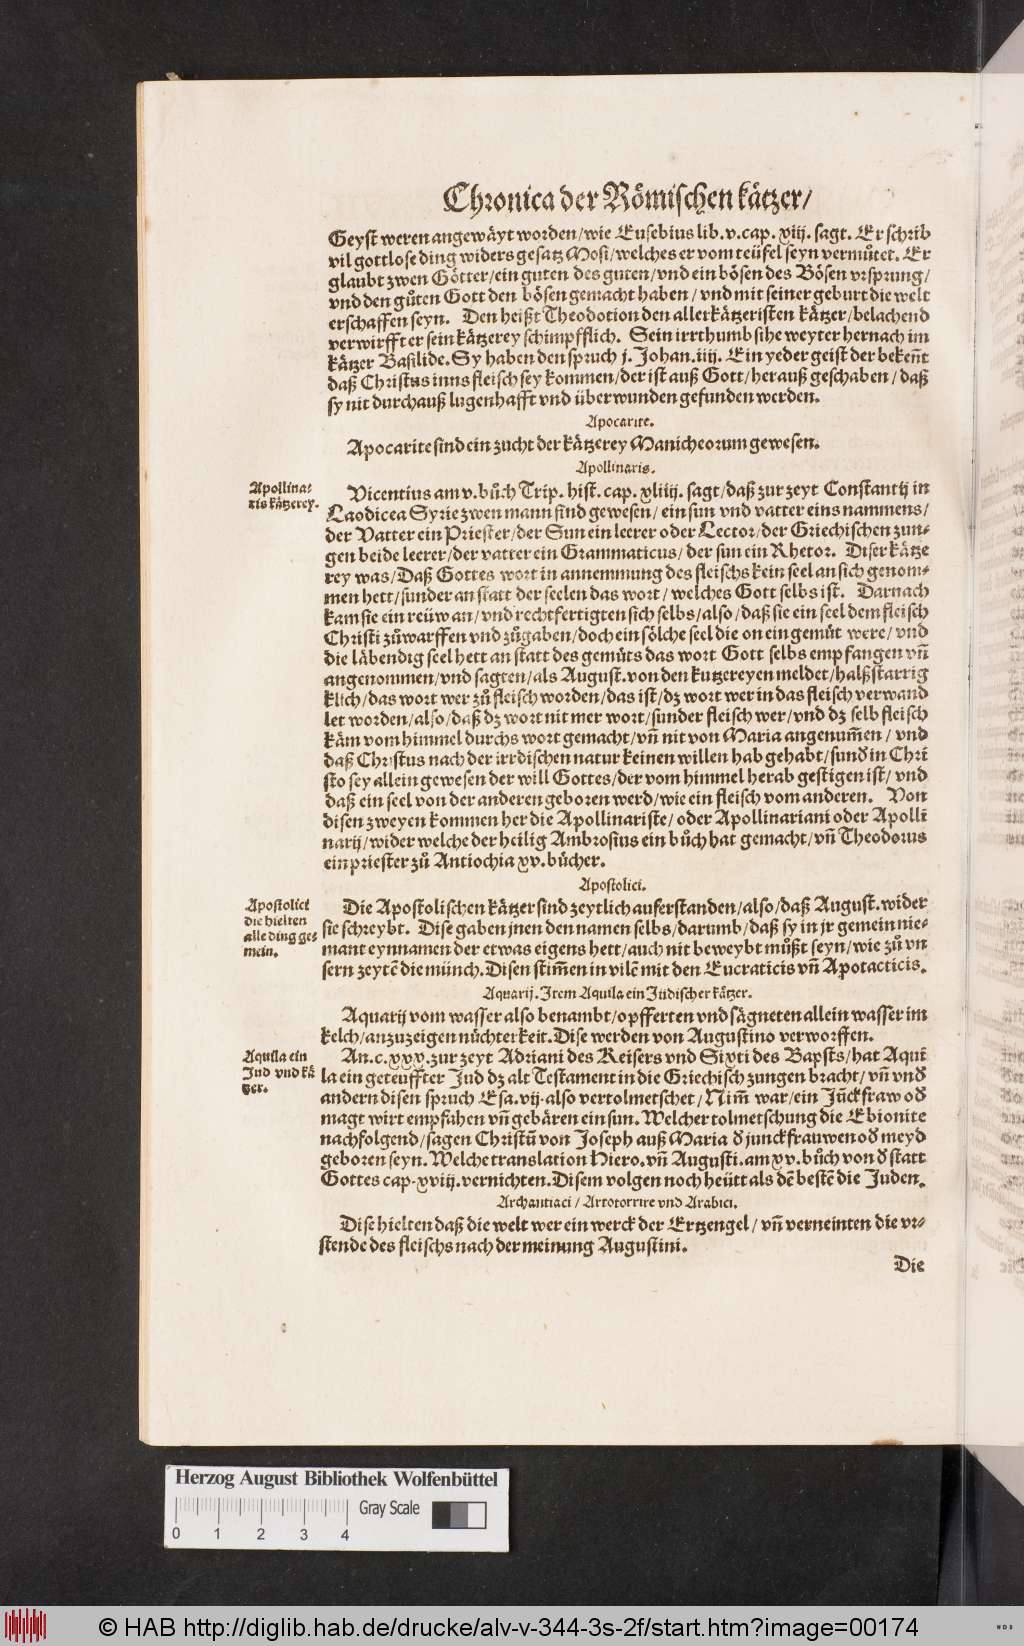 Chronica der Römischen kätzer/
Geyst weren angewäyt worden/wie Eusebius lib. v. cap. xiij. sagt. Er schrib
vil gottlose ding widers gesatz Mosi/welches er vom teüfel seyn vermůtet. Er
glaubt zwen Götter/ein guten des guten/vnd ein bösen des Bösen vrsprung/
vnd den gůten Gott den bösen gemacht haben/vnd mit seiner geburt die welt
erschaffen seyn. Den heißt Theodotion den allerkätzeristen kätzer/belachend
verwirfft er sein kätzerey schimpfflich. Sein irrthumb sihe weyter hernach im
kätzer Basilide. Sy haben den spruch j. Johan. iiij. Ein yeder geist der bekeñt
daß Christus inns fleisch sey kommen/der ist auß Gott/herauß geschaben/daß
sy nit durchauß lugenhafft vnd überwunden gefunden werden.
Apocarite.
Apocarite sind ein zucht der kätzerey Manicheorum gewesen.
Apollinaris.
Apollina-
ris kätzerey.
Vicentius am v. bůch Trip. hist. cap. xliiij. sagt/daß zur zeyt Constantij in
Laodicea Syrie zwen mann sind gewesen/ein sun vnd vatter eins nammens/
der Vatter ein Priester/der Sun ein leerer oder Lector/der Griechischen zun-
gen beide leerer/der vatter ein Grammaticus/der sun ein Rhetor. Diser kätze
rey was/Daß Gottes wort in annemmung des fleischs kein seel an sich genom-
men hett/sunder an statt der seelen das wort/welches Gott selbs ist. Darnach
kam sie ein reüw an/vnd rechtfertigten sich selbs/also/daß sie ein seel dem fleisch
Christi zůwarffen vnd zůgaben/doch ein sölche seel die on ein gemůt were/vnd
die läbendig seel hett an statt des gemůts das wort Gott selbs empfangen vñ
angenommen/vnd sagten/als August. von den kutzereyen meldet/halßstarrig
klich/das wort wer zů fleisch worden/das ist/dz wort wer in das fleisch verwand
let worden/also/daß dz wort nit mer wort/sunder fleisch wer/vnd dz selb fleisch
käm vom himmel durchs wort gemacht/vñ nit von Maria angenum̃en/vnd
daß Christus nach der irrdischen natur keinen willen hab gehabt/sunď in Chri
sto sey allein gewesen der will Gottes/der vom himmel herab gestigen ist/vnd
daß ein seel von der anderen geboren werd/wie ein fleisch vom anderen. Von
disen zweyen kommen her die Apollinariste/oder Apollinariani oder Apolli
narij/wider welche der heilig Ambrosius ein bůch hat gemacht/vñ Theodorus
ein priester zů Antiochia xv. bücher.
Apostolici.
Apostolici
die hielten
alle ding ge-
mein.
Die Apostolischen kätzer sind zeytlich auferstanden/also/daß August. wider
sie schreybt. Dise gaben jnen den namen selbs/darumb/daß sy in jr gemein nie-
mant eynnamen der etwas eigens hett/auch nit beweybt müßt seyn/wie zů vn
sern zeytẽ die münch. Disen stim̃en in vilẽ mit den Eucraticis vñ Apotacticis.
Aquarij. Item Aquila ein Jüdischer kätzer.
Aquarij vom wasser also benambt/opfferten vnd sägneten allein wasser im
kelch/anzuzeigen nüchterkeit. Dise werden von Augustino verworffen.
Aquila ein
Jud vnd kä
tzer.
An. c. xxx. zur zeyt Adriani des Keisers vnd Sixti des Bapsts/hat Aqui
la ein geteuffter Jud dz alt Testament in die Griechisch zungen bracht/vñ vnď
andern disen spruch Esa. vij. also vertolmetschet/Nim̃ war/ein Jũckfraw oď
magt wirt empfahen vñ gebären ein sun. Welcher tolmetschung die Ebionite
nachfolgend/sagen Christũ von Joseph auß Maria ď junckfrauwen oď meyd
geboren seyn. Welche translation Hiero. vñ Augusti. am xv. bůch von ď statt
Gottes cap. xviij. vernichten. Disem volgen noch heütt als dẽ bestẽ die Juden.
Archantiaci/Artotorrire vnd Arabici.
Dise hielten daß die welt wer ein werck der Ertzengel/vñ verneinten die vr-
stende des fleischs nach der meinung Augustini.
Die
Herzog August Bibliothek Wolfenbüttel
Gray Scale
0 1 2 3 4
© HAB http://diglib.hab.de/drucke/alv-v-344-3s-2f/start.htm?image=00174